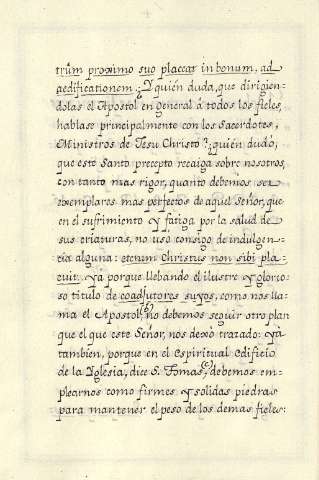 trûm proximo suo placeat in bonum, ad
aedificationem. ¿Y quién duda, que dirigien-
dolas el Apostol en general á todos los fieles,
hablase principalmente con los Sacerdotes,
Ministros de Jesu Christo? ¿quién dudó,
que este Santo precepto recaiga sobre nosotros,
con tanto mas rigor, quanto debemos ser
exemplares mas perfectos de aquel Señor, que
en el sufrimiento y fatiga por la salud de
sus criaturas, no usó consigo de indulgen-
cia alguna: etenim Christus non sibi pla-
cuit. Ya porque llebando el ilustre y glorio-
so titulo de coadjutores suyos, como nos lla-
ma el Apostol, (b) no debemos seguir otro plan
que el que este Señor, nos dexó trazado: Ya
tambien, porque en el Espiritual Edificio
de la Yglesia, dice S. Tomas, (c) debemos em-
plearnos como firmes y solidas piedras
para mantener el peso de los demas fieles: